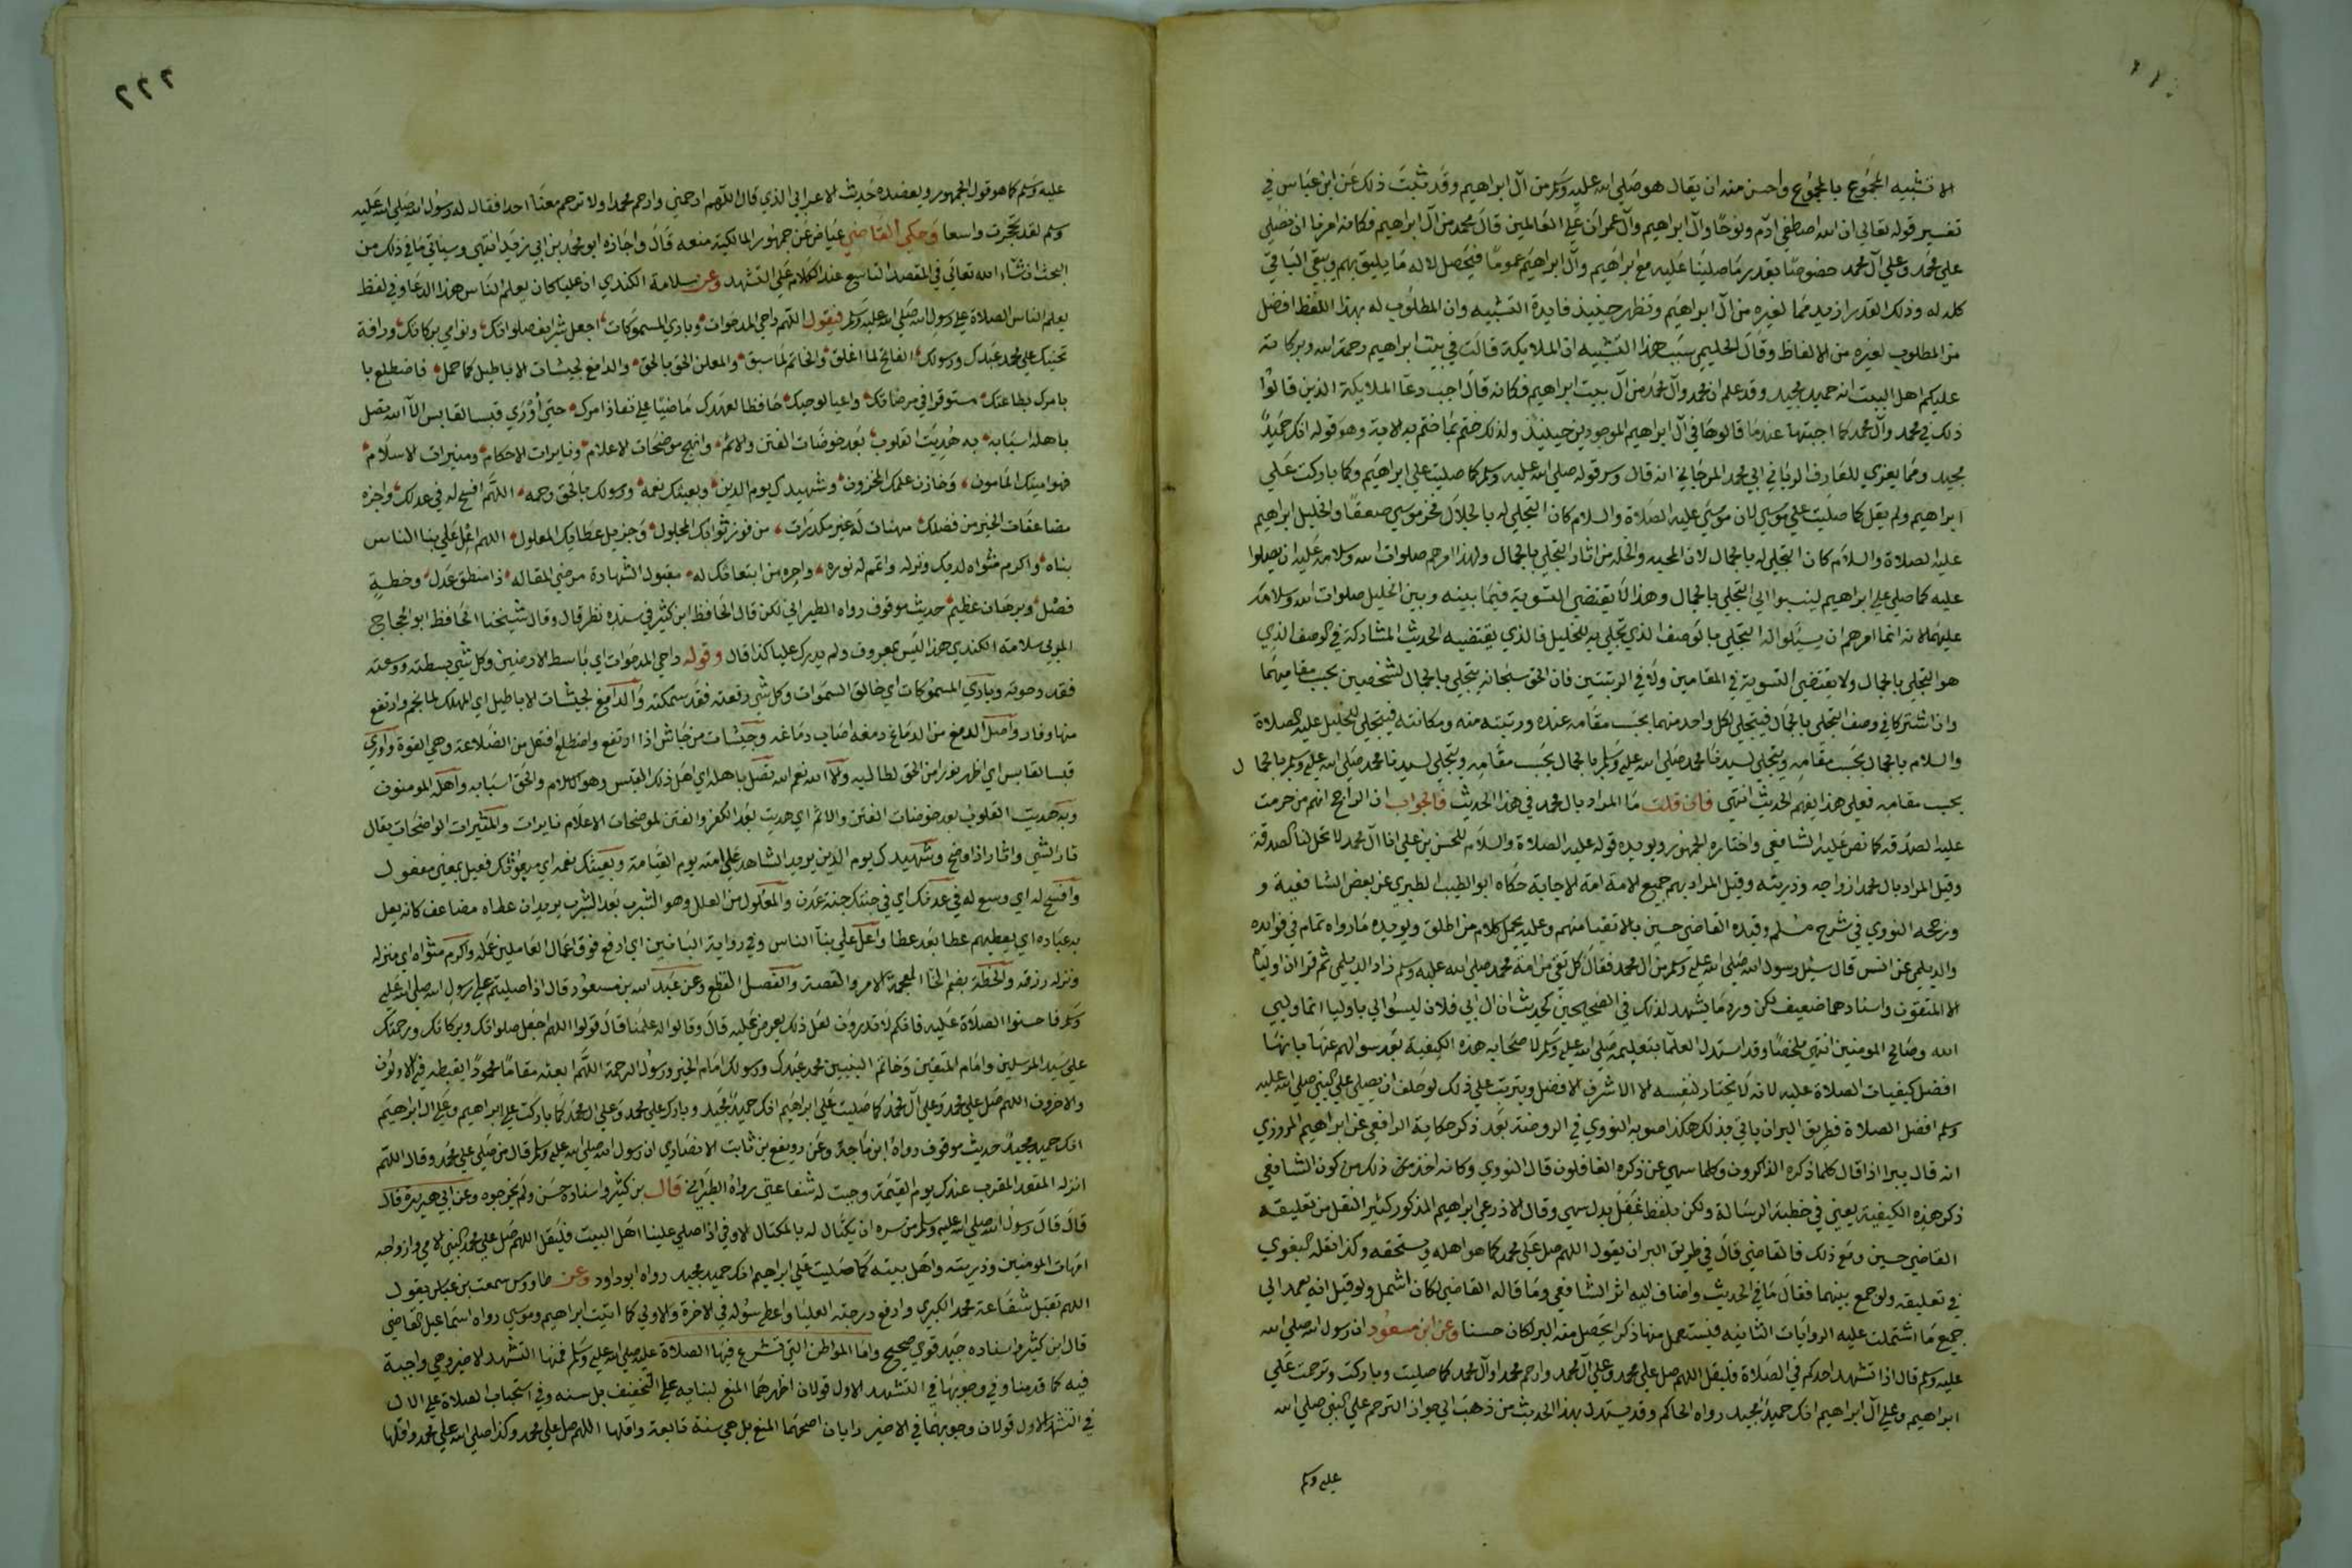 الا تشبيه المجموع بالمجموع واحسن منه ان يقال هو صلى الله عليه وسلم من آل ابراهيم وقد ثبت ذلك عن ابن عباس في
تفسير قوله تعالى ان الله اصطفى آدم ونوحا وآل ابراهيم وآل عمران على العالمين قال محمد من آل ابراهيم فكانه امرنا ان نصلي
على محمد وعلى آل محمد خصوصا بقدر ما صلينا عليه مع ابراهيم وآل ابراهيم عموما فيحصل لاله ما يليق بهم ويبقى الباقي
كله له وذلك القدر ازيد مما لغيره من آل ابراهيم وتظهر حينيذ فايدة التشبيه وان المطلوب له بهذا اللفظ افضل
من المطلوب لغيره من الالفاظ وقال الحليمي سبب هذا التشبيه ان الملايكة قالت في بيت ابراهيم رحمة الله وبركاته
عليكم اهل البيت انه حميد مجيد وقد علم ان محمد وآل محمد من آل بيت ابراهيم فكانه قال اجب دعا الملايكة الذين قالوا
ذلك في محمد وآل محمد كما اجبتها عندما قالوها في آل ابراهيم الموجودين حينيذ ولذلك ختم بما ختم به الاية وهو قوله انك حميد
مجيد ومما يعزي للعارف الرباني ابي محمد المرجاني انه قال وسر قوله صلى الله عليه وسلم كما صليت على ابراهيم وكما باركت على
ابراهيم ولم يقل كما صليت على موسى لان موسى عليه الصلاة والسلام كان التجلي له بالجلال فخر موسى صعقا والخليل ابراهيم
عليه الصلاة والسلام كان التجلي له بالجمال لان المحبة والخلة من اثار التجلي بالجمال ولهذا امرهم صلوات الله وسلامه عليه ان يصلوا
عليه كما صلى على ابراهيم ليسالوا التجلي بالجمال وهذا لا يقتضي التسوية فيما بينه وبين الخليل صلوات الله وسلامه
عليهما لانه انما امرهم ان يسئلوا له التجلي بالوصف الذي تجلى به للخليل فالذي يقتضيه الحديث المشاركة في الوصف الذي
هو التجلي بالجمال ولا يقتضي التسوية في المقامين ولا في الرتبتين فان الحق سبحانه يتجلى بالجمال لشخصين بحسب مقاميهما
وان اشتركا في وصف التجلي بالجمال فيتجلى لكل واحد منهما بحسب مقامه عنده ورتبته منه ومكانته فيتجلى للخليل عليه الصلاة
والسلام بالجمال بحسب مقامه ويتجلى لسيدنا محمد صلى الله عليه وسلم بالجمال بحسب مقامه
بحسب مقامه فعلى هذا يفهم الحديث انتهى فان قلت ما المراد بال محمد في هذا الحديث فالجواب ان الراجح انهم من حرمت
عليه الصدقه كما نص عليه الشافعي واختاره الجمهور ويويده قوله عليه الصلاة والسلام للحسن بن علي انا آل محمد لا تحل لنا الصدقة
وقيل المراد بال محمد ازواجه وذريته وقيل المراد بهم جميع الامة امة الاجابة حكاه ابو الطيب الطبري عن بعض الشافعية و
ورجحه النووي في شرح مسلم وقيده القاضي حسين بالاتقيا منهم وعليه يحمل كلام من اطلق ويويده ما رواه تمام في فوايده
والديلمي عن انس قال سئل رسول الله صلى الله عليه وسلم من ال محمد فقال كل تقي من امة محمد صلى الله عليه وسلم زاد الديلمي ثم قرا ان اولياه
الا المتقون واسنادهما ضعيف لكن ورد ما يشهد لذلك في الصحيحين كحديث ان آل ابي فلان ليسوا لي باوليا انما وليي
الله وصالح المومنين انتهى ملخصا وقد استدل العلما بتعليمه صلى الله عليه وسلم لاصحابه هذه الكيفية بعد سوالهم عنها بانها
افضل كيفيات الصلاة عليه لانه لا يختار لنفسه الا الاشرف الافضل ويترتب على ذلك لو حلف ان يصلي على النبي صلى الله عليه
وسلم افضل الصلاة فطريق البر ان ياتي بذلك هكذا صوبه النووي في الروضة بعد ذكر حكاية الرافعي عن ابراهيم المروزي
انه قال يبرا اذا قال كلما ذكره الذاكرون وكلما سهى عن ذكره الغافلون قال النووي وكانه اخذ من ذلك من كون الشافعي
ذكر هذه الكيفية يعني في خطبة الرسالة ولكن بلفظ غفل بدل سهى وقال الاذرعي ابراهيم المذكور كثير النقل من تعليقة
القاضي حسين ومع ذلك فالقاضي قال في طريق البر ان يقول اللهم صل على محمد كما هو اهله ومستحقه وكذا نقله البغوي
في تعليقه ولو جمع بينهما فقال ما في الحديث واضاف اليه اثر الشافعي وما قاله القاضي لكان اشمل ولو قيل انه يعمد الى
جميع ما اشتملت عليه الروايات الثابتة فيستعمل منها ذكرا يحصل منه البر لكان حسنا وعن ابن مسعود ان رسول الله صلى الله
عليه وسلم قال اذا تشهد احدكم في الصلاة فليقل اللهم صل على محمد وعلى آل محمد وارحم محمدا وآل محمد كما صليت وباركت وترحمت على
ابراهيم وعلى آل ابراهيم انك حميد مجيد رواه الحاكم وقد يستدل بهذا الحديث من ذهب الى جواز الترحم على النبي صلى الله
عليه وسلم
٢٢٢
عليه وسلم كما هو قول الجمهور ويعضده حديث الاعرابي الذي قال اللهم ارحمني وارحم محمدا ولا ترحم معنا احدا فقال له رسول الله صلى الله عليه
وسلم لقد تحجرت واسعا وحكى القاضي عياض عن جمهور المالكية منعه قال واجازه ابو محمد بن ابي زيد انتهى وسياتي ما في ذلك من
البحث ان شاء الله تعالى في المقصد التاسع عند الكلام على التشهد وعن سلامة الكندي ان عليا كان يعلم الناس هذا الدعا وفي لفظ
يعلم الناس الصلاة على رسول الله صلى الله عليه وسلم فيقول اللهم داحي المدحوات وباري المسموكات اجعل شرايف صلواتك ونوامي بركاتك ورافة
تحننك على محمد عبدك ورسولك الفاتح لما اغلق والخاتم لما سبق والمعلن الحق بالحق والدامغ لجيشات الاباطيل كما حمل فاضطلع با
بامرك بطاعتك مستوفزا في مرضاتك واعيا لوحيك حافظا لعهدك ماضيا على نفاذ امرك حتى أورى قبسا لقابس آلآ الله تصل
باهله اسبابه به هديت القلوب بعد خوضات الفتن والاثم وانهج موضحات الاعلام ونايرات الاحكام ومنيرات الاسلام
فهو امينك المامون وخازن علمك المخزون وشهيدك يوم الدين وبعيثك نعمة ورسولك بالحق رحمه اللهم افسح له في عدنك واجزه
مضاعفات الخير من فضلك مهنات له غير مكدرات من فوز ثوابك المحلول وجزيل عطايك المعلول اللهم اعل على بنا الناس
بناه واكرم مثواه لديك ونزله واتمم له نوره واجزه من ابتعاثك له مقبول الشهادة مرضي المقاله ذا منطق عدل وخطة
فصل وبرهان عظيم حديث موقوف رواه الطبراني لكن قال الحافظ ابن كثير في سنده نظر قال وقال شيخنا الحافظ ابو الحجاج
المزي سلامة الكندي هذا ليس بمعروف ولم يدرك عليا كذا قال وقوله داحي المدحوات اي باسط الارضين وكل شي بسطته ووسعته
فقد دحوته وباري المسموكات اي خالق السموات وكل شي رفعته فقد سمكته والدامغ لجيشات الاباطيل اي المهلك لما نجم وارتفع
منها وفار واصل الدمغ من الدماغ دمغه اصاب دماغه وجيشات من جاش اذا ارتفع واضطلع افتعل من الضلاعة وهي القوة واورى
قبسا لقابس اي اظهر نورا من الحق لطالبه والآ الله نعم الله تصل باهله اي اهل ذلك القبس وهو الاسلام والحق اسبابه واهله المومنون
وبه هديت القلوب بعد خوضات الفتن والاثم اي هديت بعد الكفر والفتن لموضحات الاعلام نايرات والمنيرات الواضحات يقال
نار الشي وانار اذا وضح وشهيدك يوم الدين يريد الشاهد على امته يوم القيامة وبعيثك نعمه اي مبعوثك فعيل بمعنى مفعول
وافسح له اي وسع له في عدنك اي في جنتك جنة عدن والمعلول من العلل وهو الشرب بعد الشرب يريد ان عطاه مضاعف كانه يعل
به عباده اي يعطيهم عطا بعد عطا واعل على بنآ الناس وفي رواية البانين اي ارفع فوق اعمال العاملين عمله واكرم مثواه اي منزله
ونزله رزقه والخطة بضم الخا المعجمة الامر والقصة والفصل القطع وعن عبد الله بن مسعود قال اذا صليتم على رسول الله صلى الله عليه
وسلم فاحسنوا الصلاة عليه فانكم لا تدرون لعل ذلك يعرض عليه قال وقالوا له علمنا قال قولوا اللهم اجعل صلواتك وبركاتك ورحمتك
على سيد المرسلين وامام المتقين وخاتم النبيين محمد عبدك ورسولك امام الخير ورسول الرحمة اللهم ابعثه مقاما محمودا يغبطه فيه الاولون
والاخرون اللهم صل على محمد وعلى آل محمد كما صليت على ابراهيم انك حميد مجيد وبارك على محمد وعلى ال محمد كما باركت على ابراهيم وعلى ال ابراهيم
انك حميد مجيد حديث موقوف رواه ابن ماجة وعن رويفع بن ثابت الانصاري ان رسول الله صلى الله عليه وسلم قال من صلى على محمد وقال اللهم
انزله المقعد المقرب عندك يوم القيمة وجبت له شفاعتي رواه الطبراني قال بن كثير واسناده حسن ولم يخرجوه وعن ابي هريرة قال
قال قال رسول الله صلى الله عليه وسلم من سره ان يكتال له بالمكتال الاوفى اذا صلى علينا اهل البيت فليقل اللهم صل على محمد النبي الامي وازواجه
امهات المومنين وذريته واهل بيته كما صليت على ابراهيم انك حميد مجيد رواه ابو داود وعن طاووس سمعت بن عباس يقول
اللهم تقبل شفاعة محمد الكبرى وارفع درجته العليا واعطه سوله في الاخرة والاولى كما اتيت ابراهيم وموسى رواه اسماعيل القاضي
قال ابن كثير واسناده جيد قوي صحيح واما المواطن التي تشرع فيها الصلاة عليه صلى الله عليه وسلم فمنها التشهد الاخير وهي واجبة
فيه كما قدمنا وفي وجوبها في التشهد الاول قولان اظهرهما المنع لبنايه على التخفيف بل سنه وفي استحباب الصلاة على الال
في التشهد الاول قولان وجوبها في الاخير رايان اصحهما المنع بل هي سنة تابعة واقلها اللهم صل على محمد وكذا صلى الله على محمد واقلها